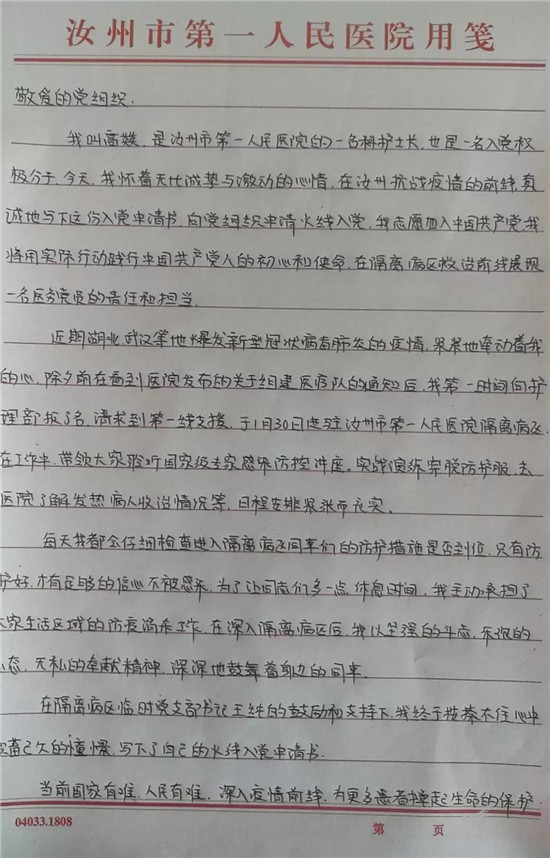 汝州市第一人民医院用笺
敬爱的党组织.
我叫高媛,是汝州市第一人民医院的一名科护士长,也是一名入党积
极分子,今天,我怀着无比诚挚与激动的心情,在汝州抗战疫情的前线,真
诚地写下这份入党申请书,向党组织申请火线入党,我志愿加入中国共产党,我
将用实际行动践行中国共产党人的初心和使命,在隔离病区救治前线展现
一名医务党员的责任和担当.
近期湖北,武汉等地爆发新型冠状病毒肺炎的疫情,紧紧地牵动着我
的心,除夕前在看到医院发布的关于组建医疗队的通知后,我第一时间向护
理部报了名,请求到第一线支援,于1月30日进驻汝州市第一人民医院隔离病区,
在工作中,带领大家聆听国家级专家感染防控讲座,实战演练穿脱防护服,去
医院了解发热病人收治情况等,日程安排紧张而充实.
每天我都会仔细检查进入隔离病区同事们的防护措施是否到位,只有防
护好,才有足够的信心不被感染,为了让同志们多一点休息时间,我主动承担了
大家生活区域的防疫消杀工作,在深入隔离病区后,我以坚强的斗志,乐观的
心态,无私的奉献精神,深深地鼓舞着身边的同事.
在隔离病区临时党支部书记王纯的鼓励和支持下,我终于按捺不住心中
蓄已久的憧憬,写下了自己的火线入党申请书.
当前国家有难,人民有难,深入疫情前线,为更多患者撑起生命的保护
04033.1808
第 页